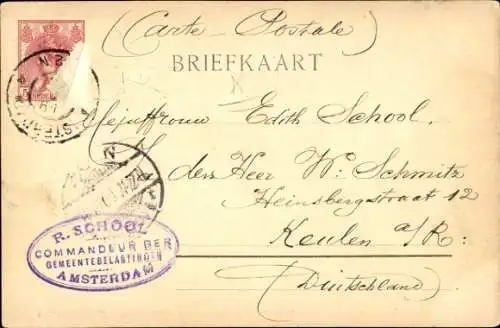 (Carte Postale)
BRIEFKAART
Mejuffrouw Edith School.
p/a den Heer W. Schmitz
Heinsbergstraat 12
Keulen a/R:
(Duitschland)
R. SCHOOL
COMMANDEUR DER
GEMEENTEBELASTINGEN
AMSTERDAM